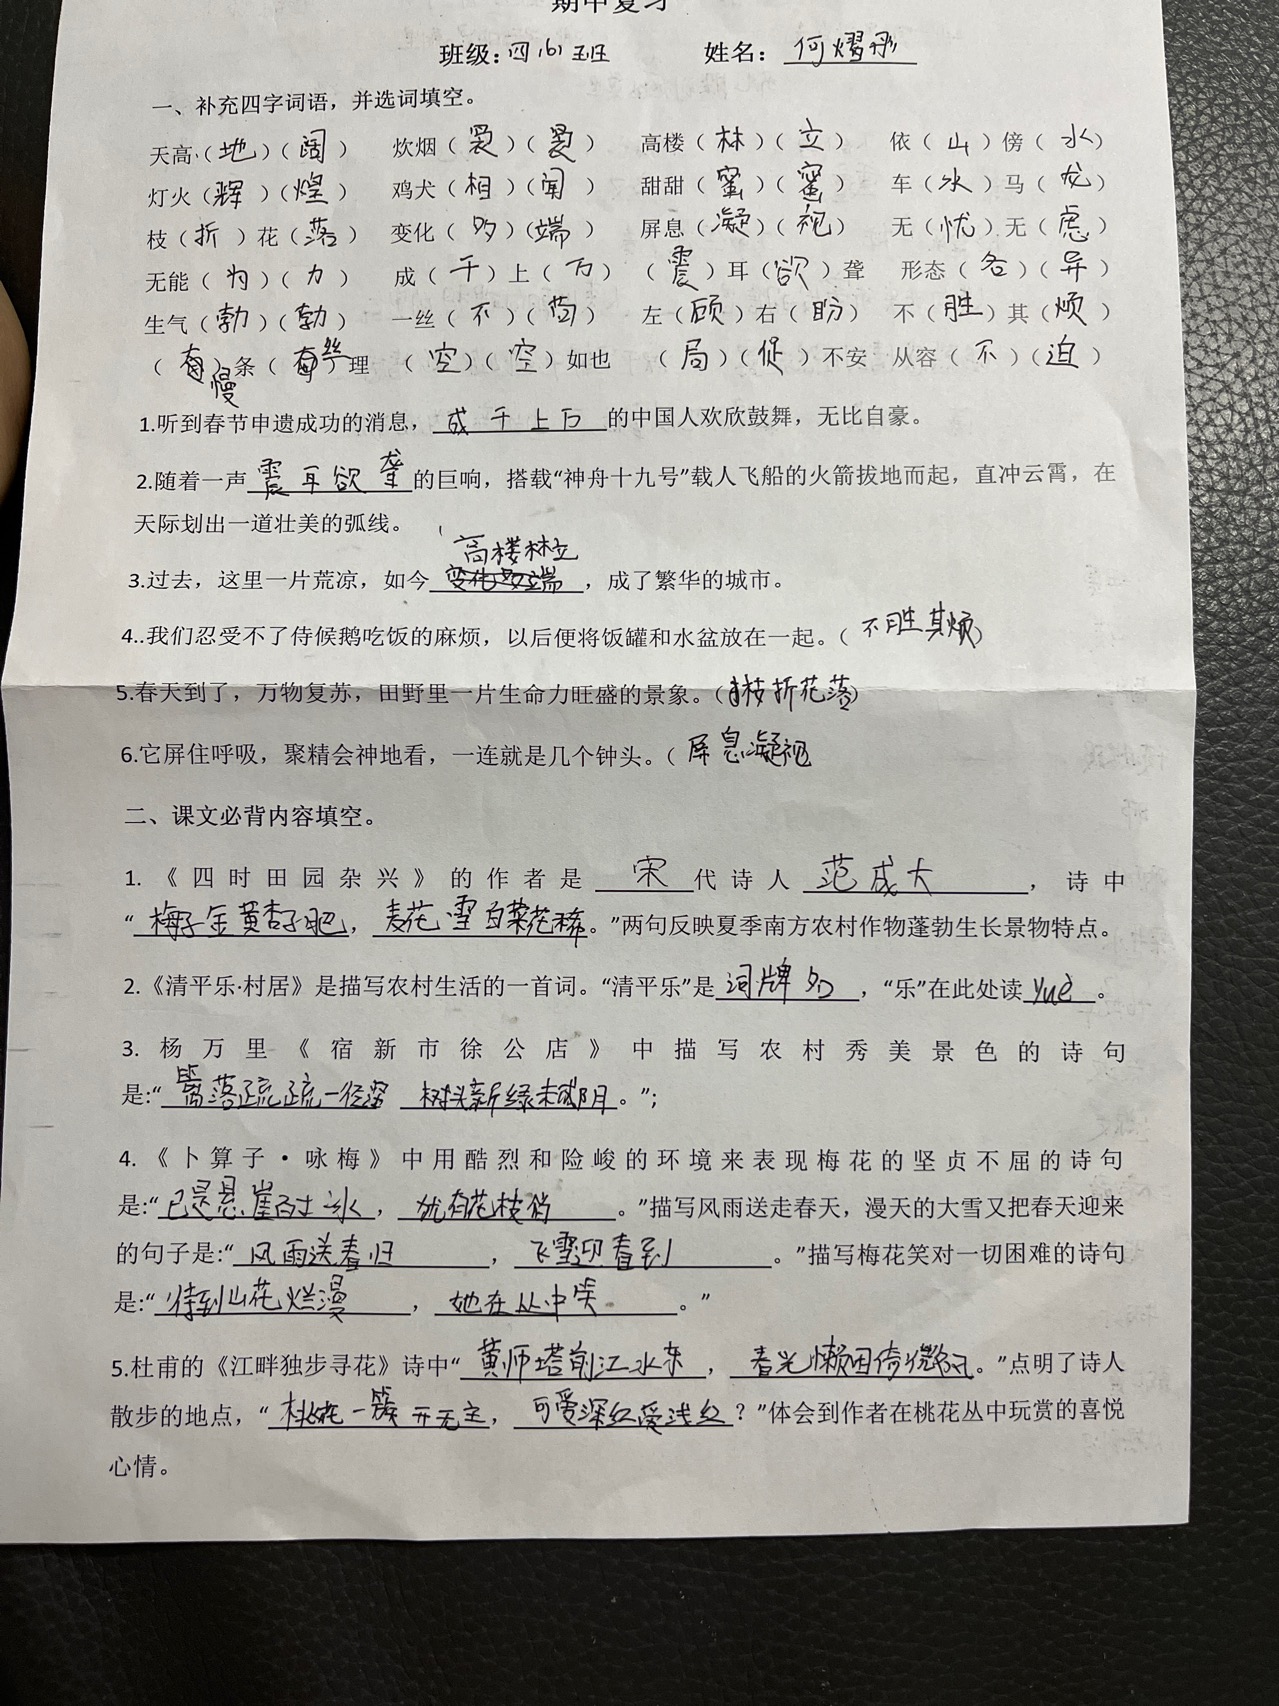 期中复习
班级：四（6）班 姓名：何熠彤
一、补充四字词语，并选词填空。
天高（地）（阔） 炊烟（袅）（袅） 高楼（林）（立） 依（山）傍（水）
灯火（辉）（煌） 鸡犬（相）（闻） 甜甜（蜜）（蜜） 车（水）马（龙）
枝（折）花（落） 变化（多）（端） 屏息（凝）（视） 无（忧）无（虑）
无能（为）（力） 成（千）上（万） （震）耳（欲）聋 形态（各）（异）
生气（勃）（勃） 一丝（不）（苟） 左（顾）右（盼） 不（胜）其（烦）
（慢）条（丝）理 （空）（空）如也 （局）（促）不安 从容（不）（迫）
1.听到春节申遗成功的消息，成千上万的中国人欢欣鼓舞，无比自豪。
2.随着一声震耳欲聋的巨响，搭载“神舟十九号”载人飞船的火箭拔地而起，直冲云霄，在
天际划出一道壮美的弧线。
高楼林立
3.过去，这里一片荒凉，如今变化多端，成了繁华的城市。
4..我们忍受不了侍候鹅吃饭的麻烦，以后便将饭罐和水盆放在一起。（不胜其烦）
5.春天到了，万物复苏，田野里一片生命力旺盛的景象。（枝折花落）
6.它屏住呼吸，聚精会神地看，一连就是几个钟头。（屏息凝视
二、课文必背内容填空。
1.《四时田园杂兴》的作者是宋代诗人范成大，诗中
“梅子金黄杏子肥，麦花雪白菜花稀。”两句反映夏季南方农村作物蓬勃生长景物特点。
2.《清平乐·村居》是描写农村生活的一首词。“清平乐”是词牌名，“乐”在此处读yuè。
3.杨万里《宿新市徐公店》中描写农村秀美景色的诗句
是:“篱落疏疏一径深 树头新绿未成阴。”;
4.《卜算子·咏梅》中用酷烈和险峻的环境来表现梅花的坚贞不屈的诗句
是:“已是悬崖百丈冰，犹有花枝俏。”描写风雨送走春天，漫天的大雪又把春天迎来
的句子是:“风雨送春归，飞雪迎春到。”描写梅花笑对一切困难的诗句
是:“待到山花烂漫，她在丛中笑。”
5.杜甫的《江畔独步寻花》诗中“黄师塔前江水东，春光懒困倚微风。”点明了诗人
散步的地点，“桃花一簇开无主，可爱深红爱浅红？”体会到作者在桃花丛中玩赏的喜悦
心情。